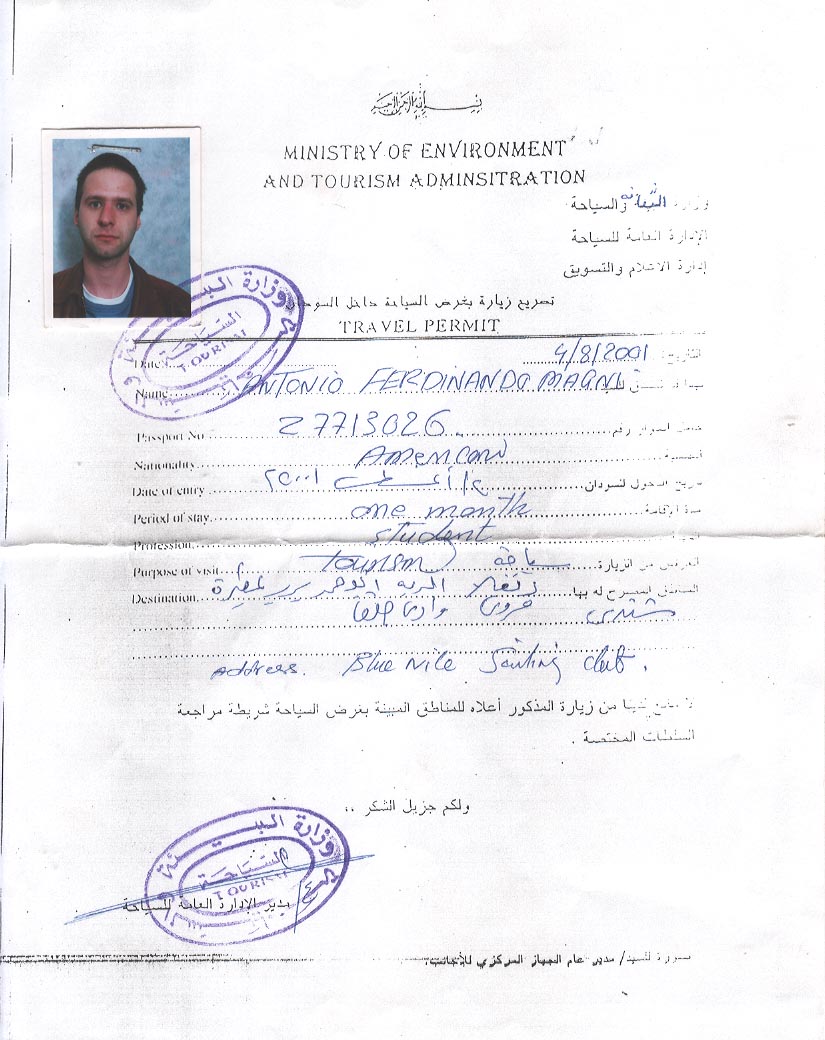 بسم الله الرحمن الرحيم
MINISTRY OF ENVIRONMENT
AND TOURISM ADMINSITRATION
وزارة والسياحة
الإدارة العامة للسياحة
إدارة الاعلام والتسويق
تصريح زيارة بغرض السياحة داخل السودان
TRAVEL PERMIT
Date 4/8/2001 التاريخ:
Name ANTONIO FERDINANDO MAGNI
Passport No Z7713026 رقم
Nationality American
Date of entry ٢٠٠١ أغسطس تاريخ الدخول للسودان
Period of stay one month مدة الإقامة
Profession student
Purpose of visit Tourism سياحة الغرض من الزيارة
Destination دنقلا المناطق المصرح له بها
شندى وادى حلفا
Address. Blue Nile Sailing club.
لا مانع لدينا من زيارة المذكور أعلاه للمناطق المبينة بغرض السياحة شريطة مراجعة
السلطات المختصة .
ولكم جزيل الشكر ،،
وزارة البيئة
السياحة
TOURISM
مدير الإدارة العامة للسياحة
صورة للسيد/ مدير عام الجهاز المركزي للأجانب.